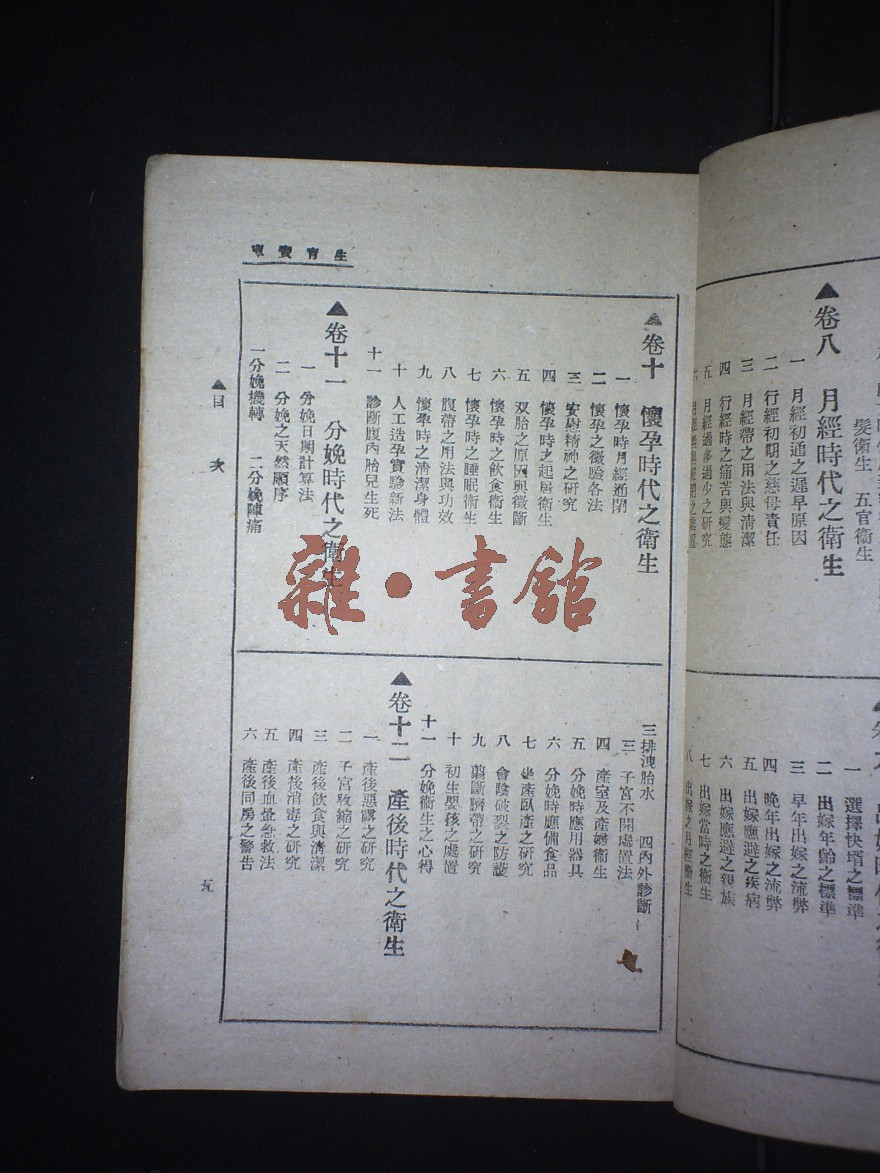 ▲卷八 月經時代之衛生
一 月經初通之遲早原因
二 行經初期之慈母責任
三 月經帶之用法與清潔
四 行經時之痛苦與變態
五 月經過多過少之研究
一 選擇快壻之標準
二 出嫁年齡之標準
三 早年出嫁之流弊
四 晚年出嫁之流弊
五 出嫁應避之疾病
六 出嫁應避之親族
七 出嫁當時之衛生
髮衛生 五官衛生
生育寶庫
▲卷十 懷孕時代之衛生
一 懷孕時月經通閉
二 懷孕之徵驗各法
三 安慰精神之研究
四 懷孕時之起居衛生
五 双胎之原因與徵斷
六 懷孕時之飲食衛生
七 懷孕時之睡眠衛生
八 腹帶之用法與功效
九 懷孕時之清潔身體
十 人工造孕實驗新法
十一 診斷腹內胎兒生死
▲卷十一 分娩時代之衛生
一 分娩日期計算法
二 分娩之天然順序
一分娩機轉 二分娩陣痛
三排洩胎水 四內外診斷
三 子宮不開處置法
四 產室及產婦衛生
五 分娩時應用器具
六 分娩時應備食品
七 坐產臥產之研究
八 會陰破裂之防護
九 剪斷臍帶之研究
十 初生嬰孩之處置
十一 分娩衛生之心得
▲卷十二 產後時代之衛生
一 產後惡露之研究
二 子宮收縮之研究
三 產後飲食與清潔
四 產後消毒之研究
五 產後血暈急救法
六 產後同房之警告
▲目 次
五
雜·書舘